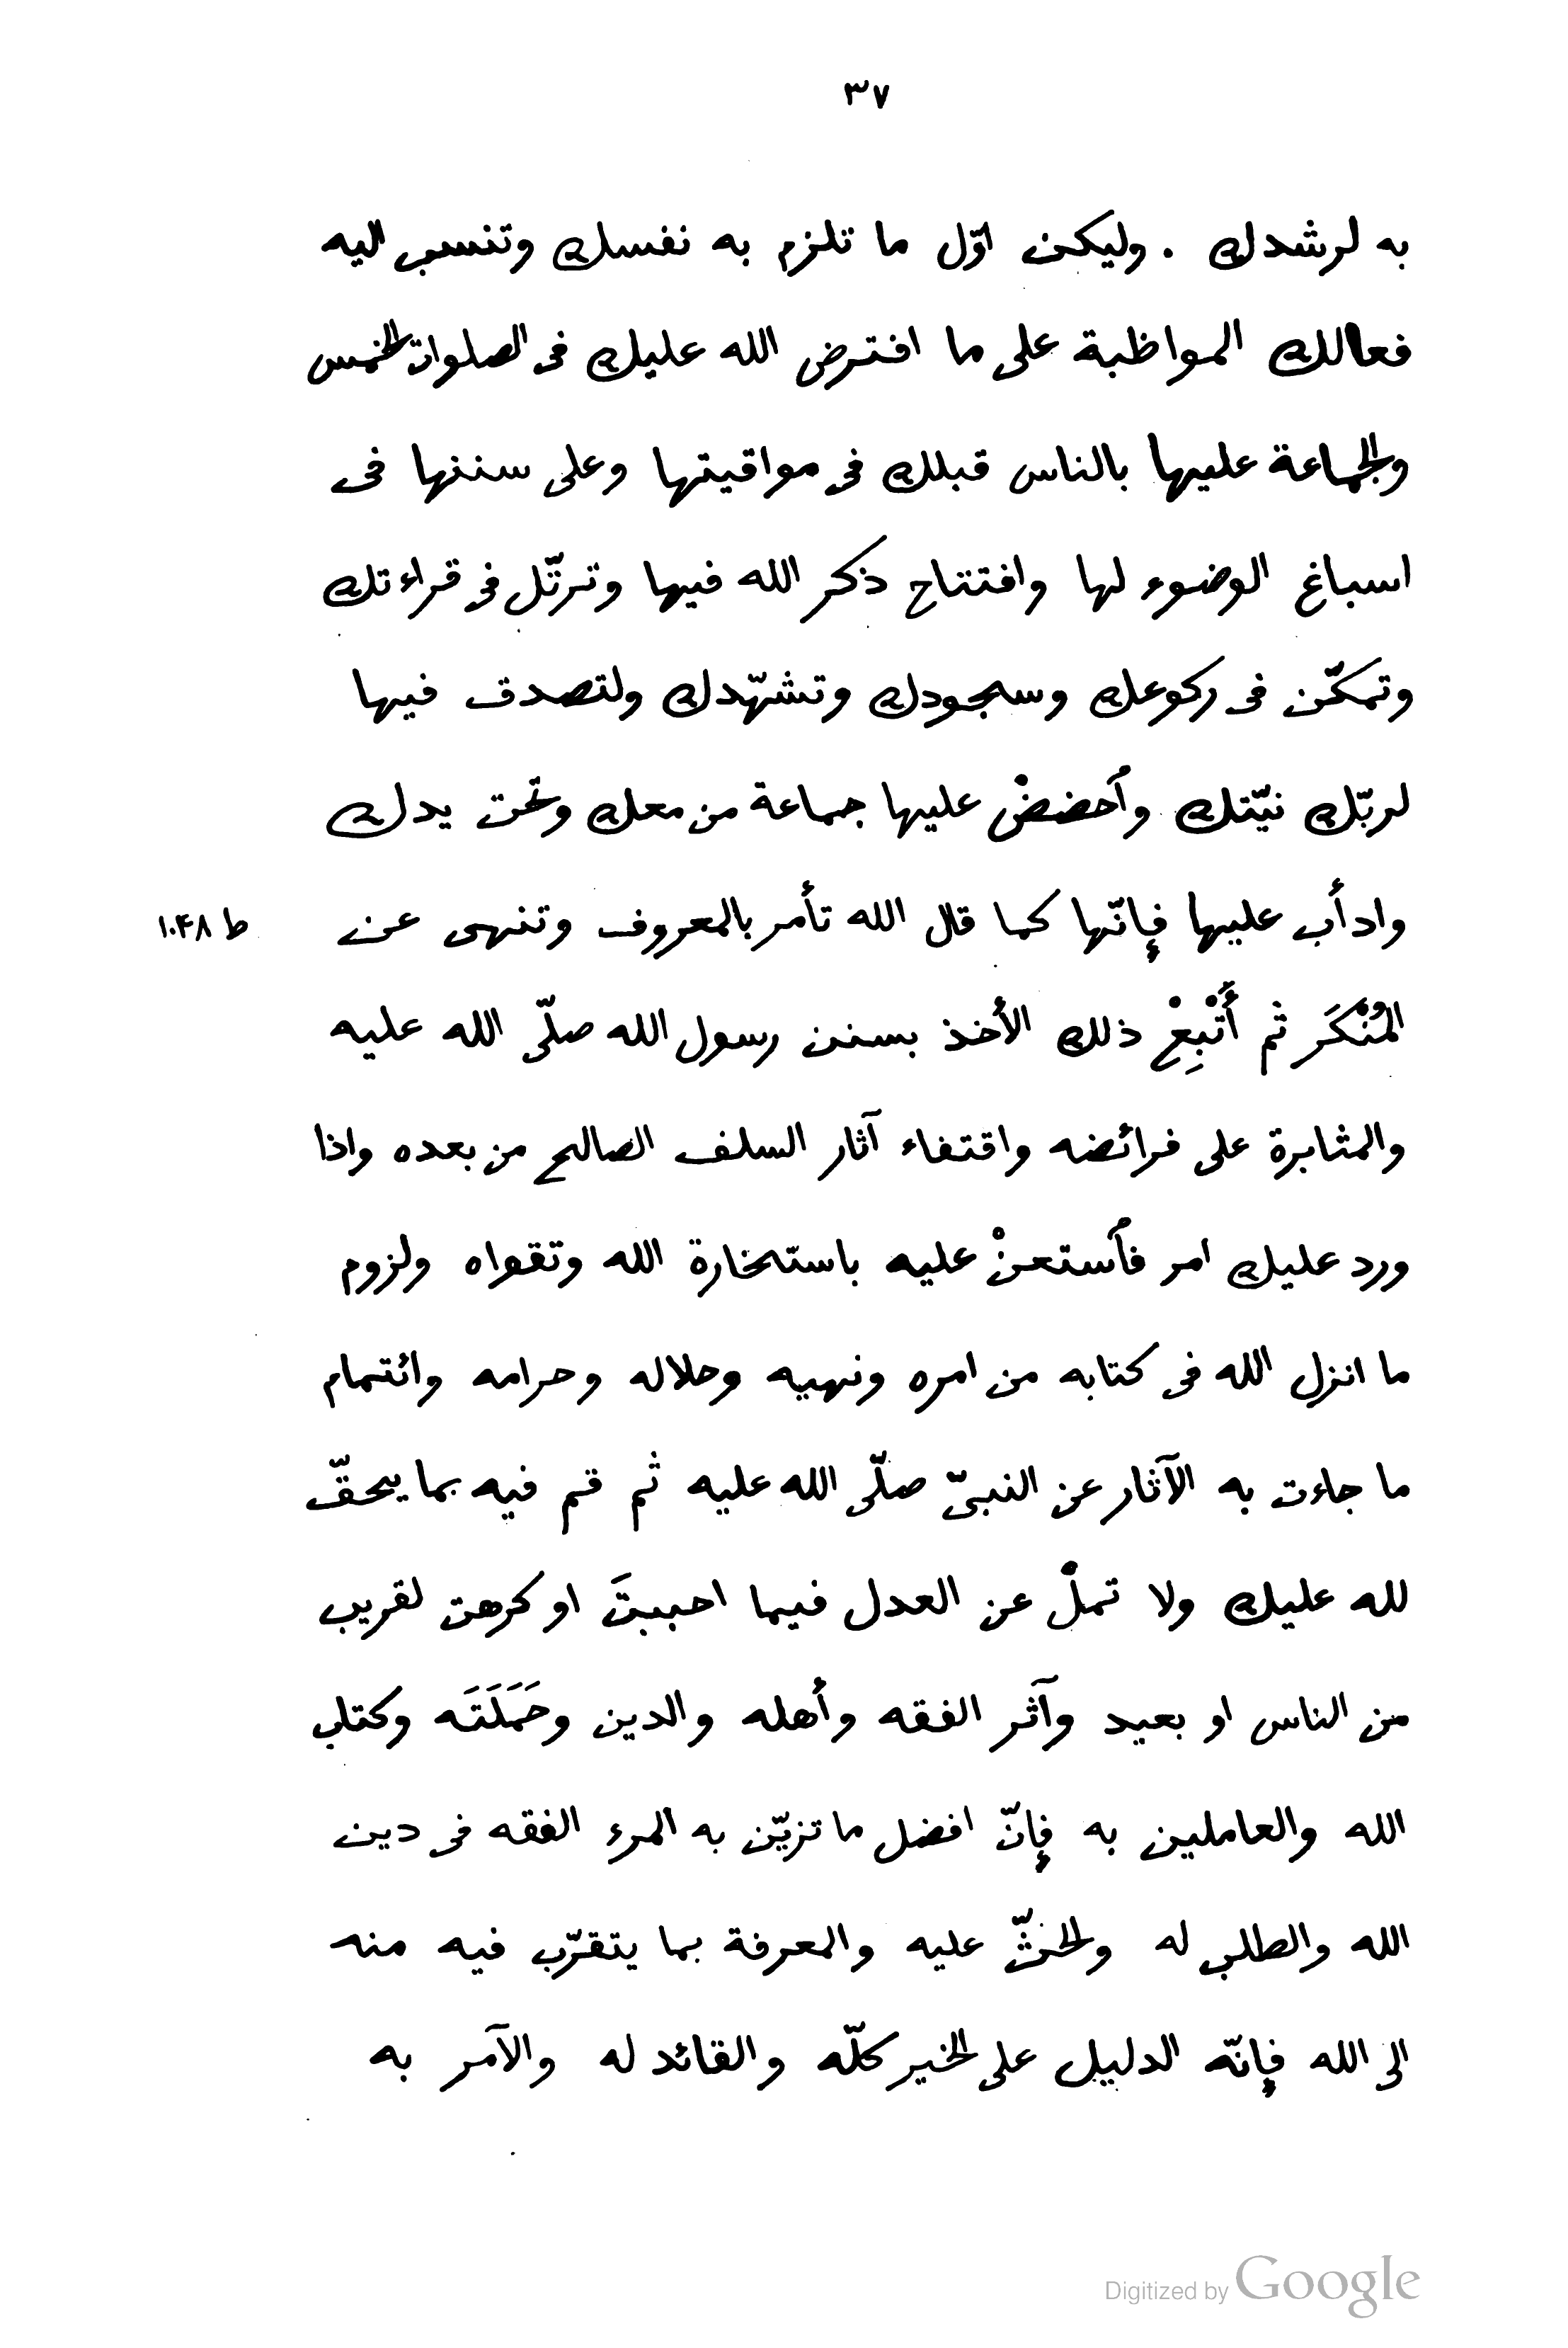 ٣٧
به لرشدك . وليكن اوّل ما تلزم به نفسك وتنسب اليه
فعالك المواظبة على ما افترض الله عليك فى الصلوات الخمس
والجماعة عليها بالناس قبلك فى مواقيتها وعلى سننها فى
اسباغ الوضوء لها وافتتاح ذكر الله فيها وترتّل فى قراءتك
وتمكّن فى ركوعك وسجودك وتشهّدك ولتصدق فيها
لربّك نيّتك وأحضضْ عليها جماعة من معك وتحت يدك
وادأب عليها فإنّها كما قال الله تأمر بالمعروف وتنهى عن ط ١٠۴٨
المُنْكَر ثم أَتْبِعْ ذلك الأخذ بسنن رسول الله صلّى الله عليه
والمثابرة على فرائضه واقتفاء آثار السلف الصالح من بعده واذا
ورد عليك امر فأستعنْ عليه باستخارة الله وتقواه ولزوم
ما انزل الله فى كتابه من امره ونهيه وحلاله وحرامه وائتمام
ما جاءت به الآثار عن النبىّ صلّى الله عليه ثم قم فيه بما يحقّ
لله عليك ولا تملْ عن العدل فيما احببتَ او كرهت لقريب
من الناس او بعيد وآثر الفقه وأهله والدين وحَمَلَتَه وكتاب
الله والعاملين به فإنّ افضل ما تزيّن به المرء الفقه فى دين
الله والطلب له والحثّ عليه والمعرفة بما يتقرّب فيه منه
الى الله فإنّه الدليل على الخير كلّه والقائد له والآمر به
Digitized by Google